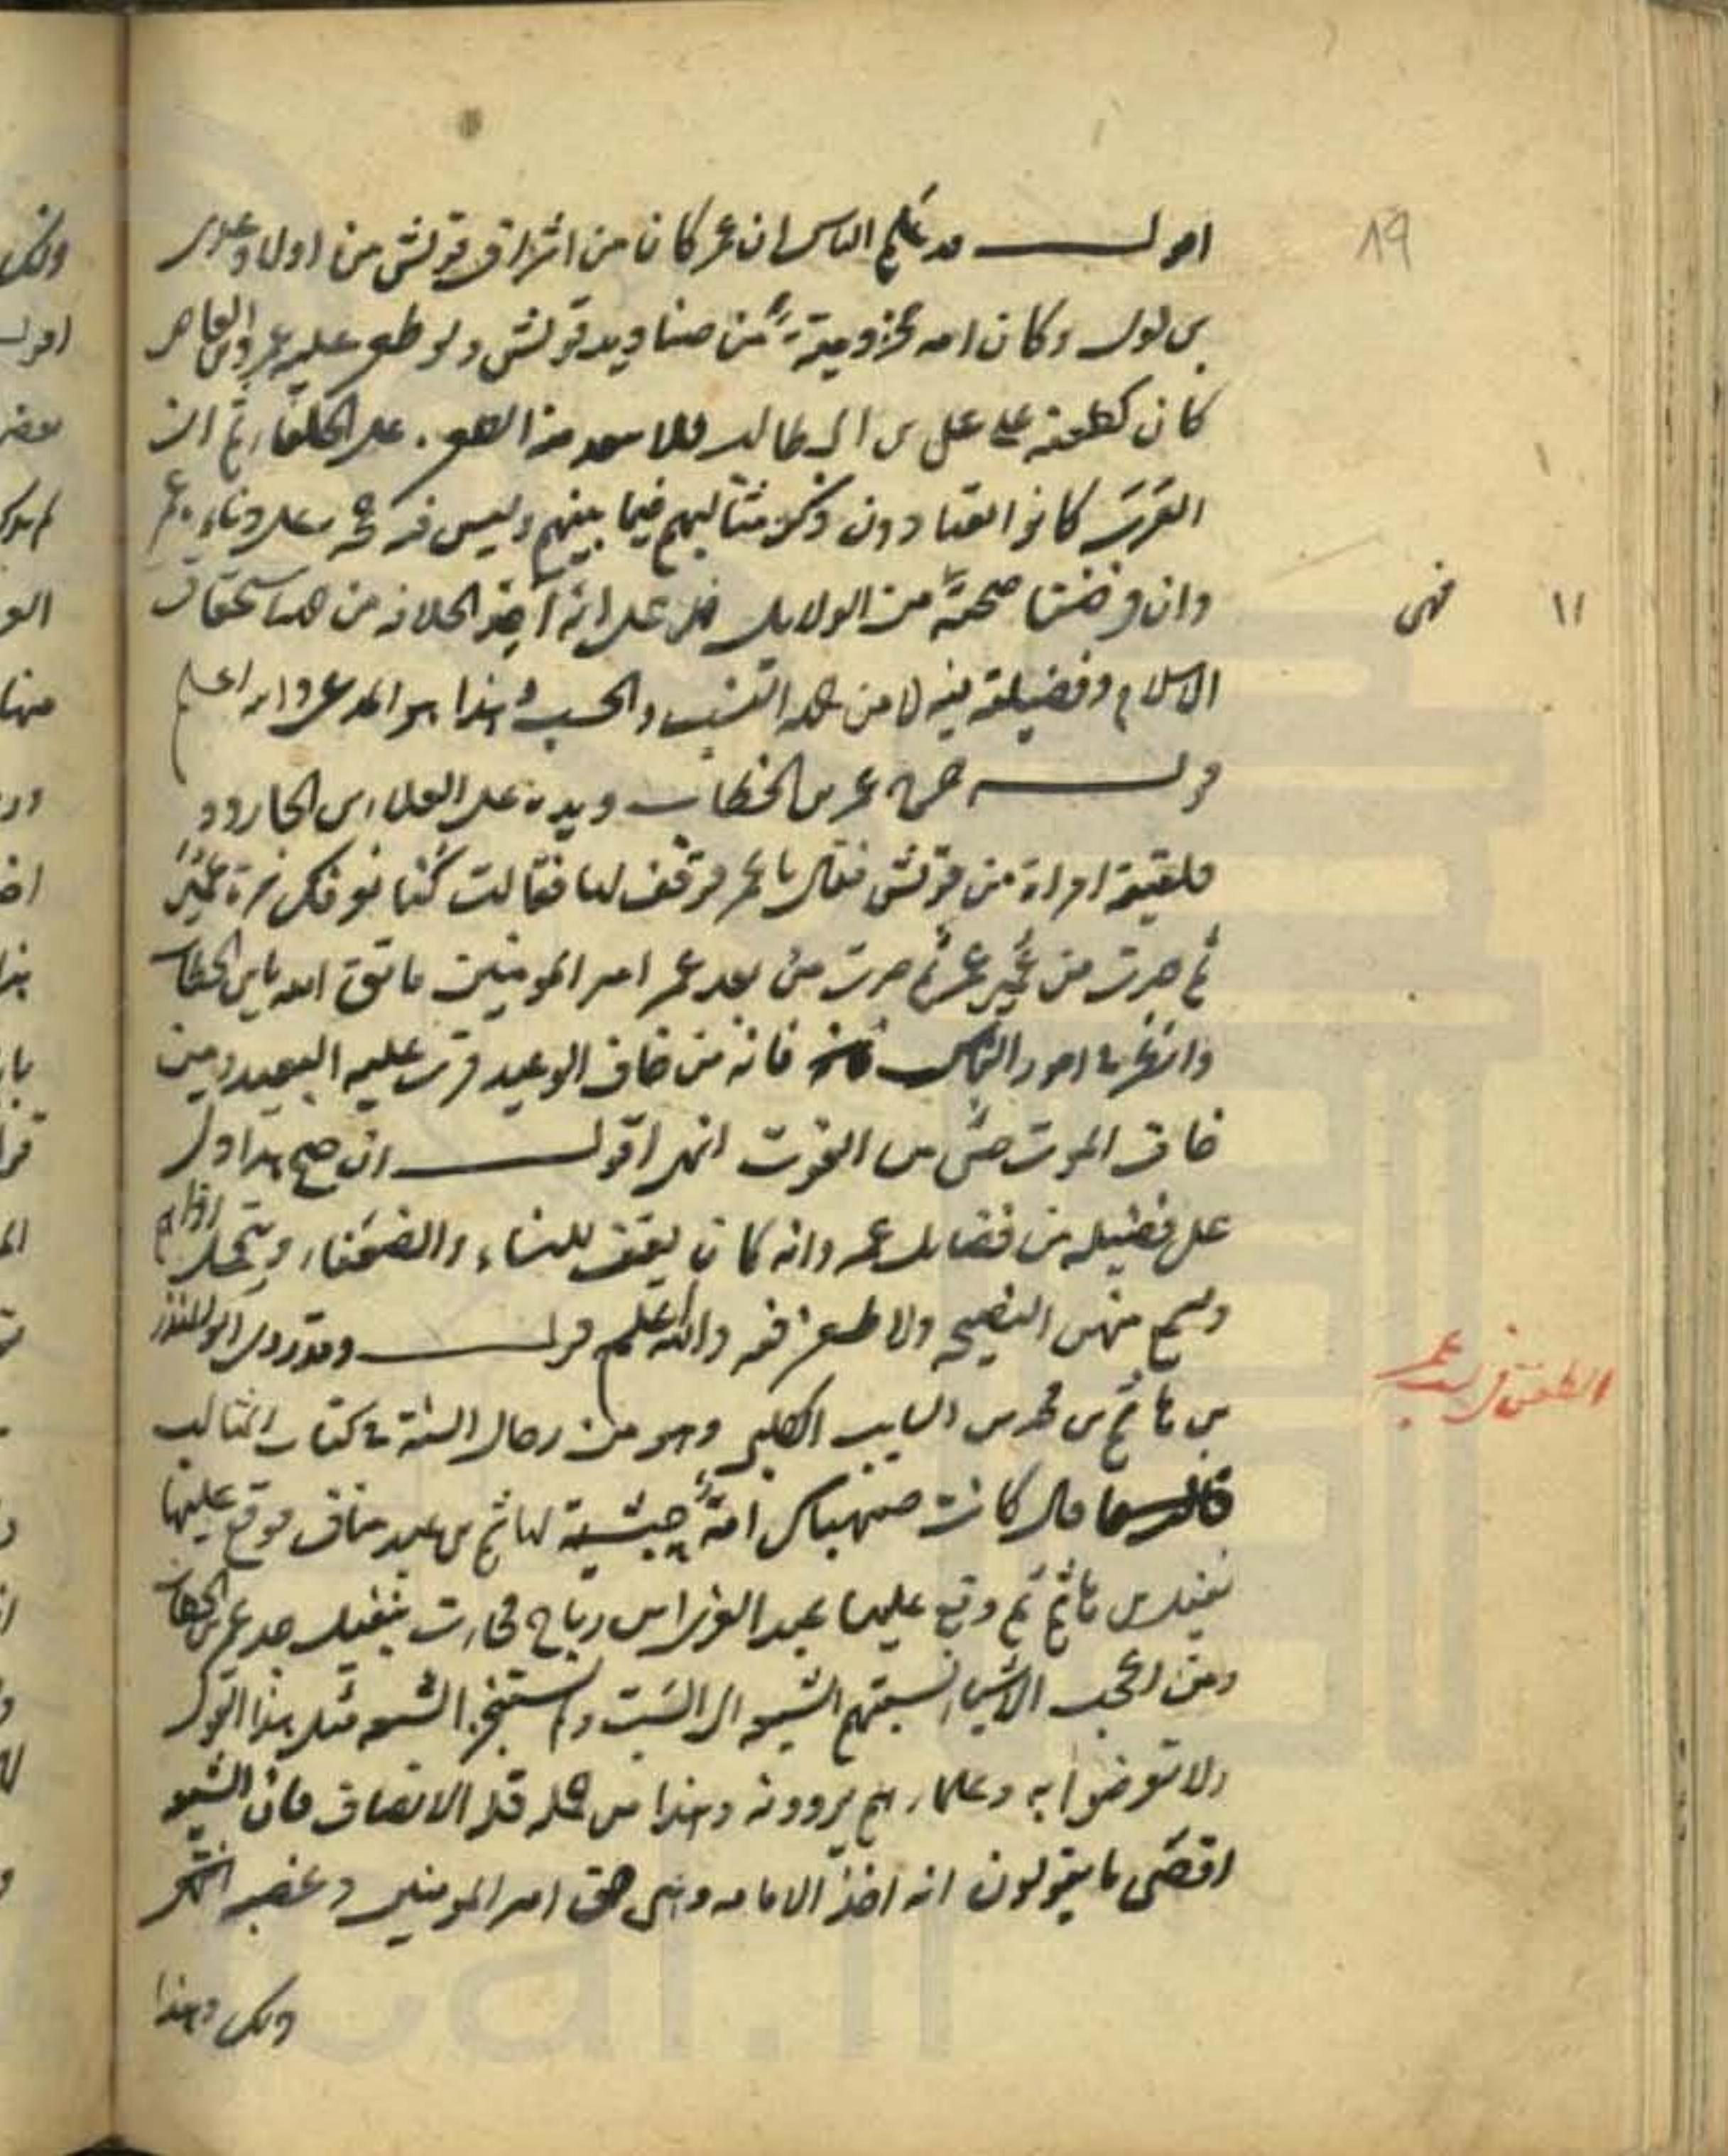 اقول قد علم الناس ان عمر كان من اشراف قريش من اولاد عدى
بن لوى وكان امه مخزومية من صناديد قريش ولو طعن عليه عمرو بن العاص
كان كطعنه على على بن ابى طالب على الخلفاء ثم ان
العرب كانوا يعتادون ذكر مثالبهم فيما بينهم وليس فيه
وان فرضنا صحته من الدلايل فدل على انه اخذ الخلافة من جهة استحقاق
الاسلام وفضيلته فيه لا من جهة النسب والحسب وهذا هو المدعى والله اعلم
قوله خرج عمر بن الخطاب ويده على المعلى بن الجارود
فلقيته امراة من قريش فقالت يا عمر فوقف لها فقالت كنا نعرفك مرة عميرا
ثم صرت من عمير عمر ثم صرت من بعد عمر امير المومنين فاتق الله يابن الخطاب
وانظر فى امور الناس فانه من خاف الوعيد قرب عليه البعيد ومن
خاف الموت خشى من الفوت انتهى اقول ان صح هذا دل
على فضيلة من فضايل عمر وانه كان يقف للنساء والضعفاء ويتحمل اذاهم
ويسمع منهن النصيحة ولا طعن فيه والله اعلم قوله وقد روى ابو المنذر
بن هاشم بن محمد بن السايب الكلبى وهو من رجال السنة فى كتاب المثالب
قال كانت صهباك امة حبشية لهاشم بن عبد مناف فوقع عليها
نفيل بن هاشم ثم وقع عليها عبد العزى بن رباح فجاءت بنفيل جد عمر بن الخطاب
ومن اعجب الاشياء نسبتهم الشيعة الى السب ولم يستنجز الشيعة مثل هذا القول
ولا تعرضوا به وعلماءهم يروونه وهذا من جملة قلة الانصاف فان الشيعة
اقصى ما يقولون انه اخذ الامامة وهى حق امير المومنين وغضبه
وهذا
٨٩
١١
الطعن فى نسب عمر